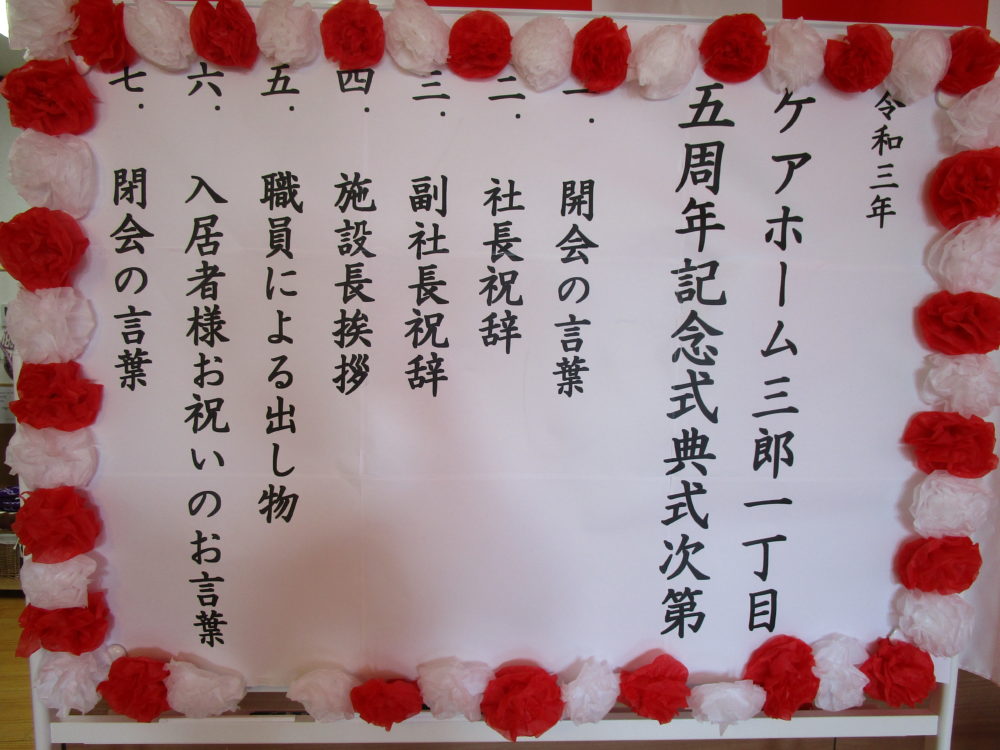 令和三年
ケアホーム三郎一丁目
五周年記念式典式次第
一．開会の言葉
二．社長祝辞
三．副社長祝辞
四．施設長挨拶
五．職員による出し物
六．入居者様お祝いのお言葉
七．閉会の言葉